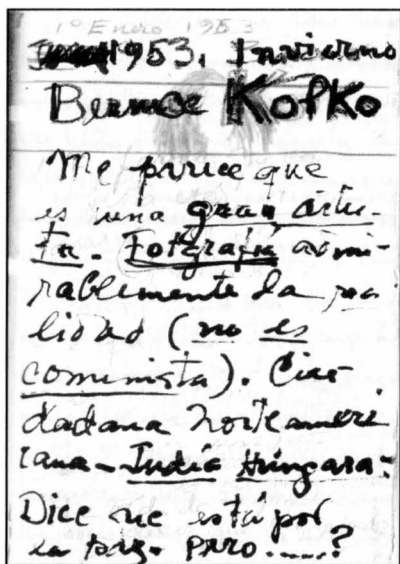 1º Enero 1953
1953. Invierno
Bernice Kolko
Me parece que
es una gran artis-
ta. Fotografia admi-
rablemente la rea
lidad (no es
comunista). Ciu-
dadana norteameri
cana - Judia Húngara:
Dice que está por
la paz. pero.....?